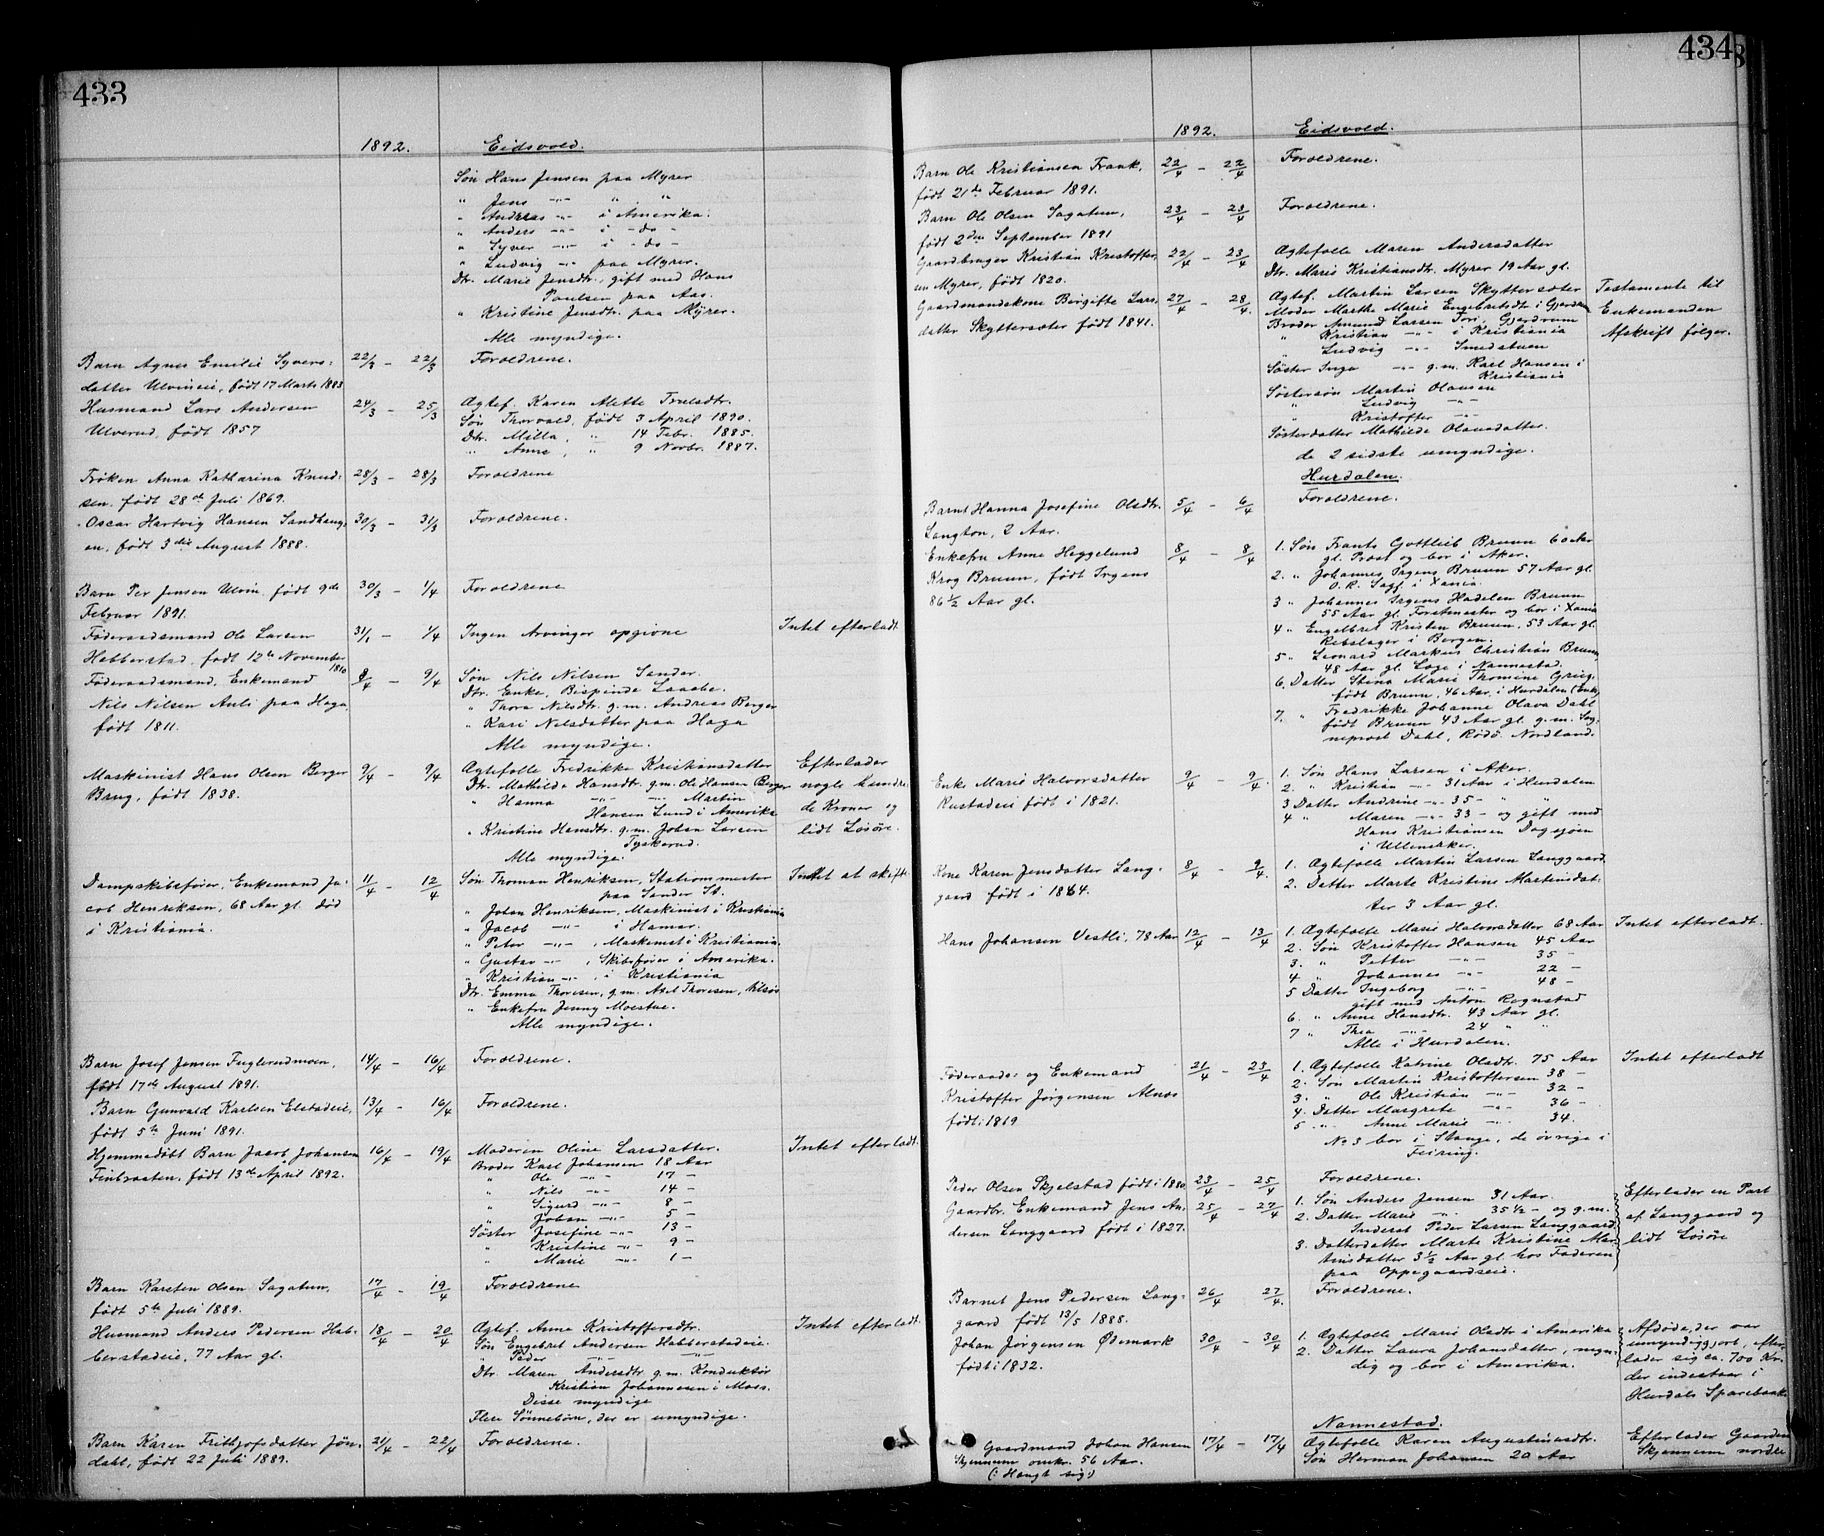 433
1892. Eidsvold.
Søn Hans Jensen paa Myrer
" Jens —"— " "
" Andreas —"— i Amerika.
" Anders —"— i - do -
" Syver —"— i - do -
" Ludvig —"— paa Myrer.
Dtr. Marie Jensdtr. gift med Hans
Poulsen paa Aas.
" Kristine Jensdtr. paa Myrer.
Alle myndige.
Barn Agnes Emilie Syvers- 22/3 — 22/3 Forældrene.
datter Ulvineie, født 17 Marts 1883
Husmand Lars Andersen 24/3 — 25/3 Ægtef. Karen Alette Truelsdtr.
Ulverud, født 1857 Søn Thorvald, født 3 April 1890.
Dtr. Milla, " 14 Febr. 1885.
" Anna, " 9 Novbr. 1887.
Frøken Anna Katharina Knud- 28/3 — 28/3 Forældrene
sen, født 28de Juli 1869.
Oscar Hartvig Hansen Sandhaug- 30/3 — 31/3 Forældrene.
en, født 3die August 1888.
Barn Per Jensen Ulvin, født 9de 30/3 — 1/4 Forældrene
Februar 1891.
Føderaadsmand Ole Larsen 31/1 — 1/4 Ingen Arvinger opgivne Intet efterladt.
Habberstad, født 12te November
1810
Føderaadsmand, Enkemand 8/4 — 9/4 Søn Nils Nilsen Sander.
Nils Nilsen Auli paa Haga, Dtr. Enke, Bispinde Laache.
født 1811. " Thora Nilsdtr. g.m. Andreas Berger
" Kari Nilsdatter paa Haga
Alle myndige.
Maskinist Hans Olsen Berger 9/4 — 9/4 Ægtefolle Fredrikke Kristiansdatter Efterlader
Brug, født 1838. Dtr. Mathilde Hansdtr. g.m. Ole Hansen Berger nogle hundre-
" Hanna —"— —"— Martin de Kroner og
Hansen Lund i Amerika lidt Løsøre.
" Kristine Hansdtr. g.m. Johan Larsen
Tyskerud.
Alle myndige.
Dampskibsfører, Enkemand Ja- 11/4 — 12/4 Søn Thomas Henriksen, Stationsmester Intet at skifte.
cob Henriksen, 68 Aar gl. død paa Sander St.
i Kristiania. " Johan Henriksen, Maskinist i Kristiania
" Jacob —"— i Hamar.
" Peter —"—, Maskinist i Kristiania.
" Gustav —"—, Skibsfører i Amerika.
" Kristian —"—, i Kristiania
Dtr. Emma Thoresen, g.m. Axel Thoresen,
" Enkefru Jenny Moestue.
Alle myndige.
Barn Josef Jensen Fuglerudmoen, 14/4 — 16/4 Forældrene.
født 17de August 1891.
Barn Gunvald Karlsen Elstadeie, 13/4 — 16/4 Forældrene.
født 5te Juni 1891.
Hjemmedøbt Barn Jacob Johansen 16/4 — 19/4 Moderen Oline Larsdatter. Intet efterladt.
Finbraaten, født 13de April 1892. Broder Karl Johansen 18 Aar
" Ole —"— 17 —
" Nils —"— 14 —
" Sigurd —"— 8 —
" Johan —"— 5 —
Søster Josefine —"— 13 —
" Kristine —"— 9 —
" Marie —"— 1 —
Barn Karsten Olsen Sagatun, 17/4 — 19/4 Forældrene
født 5te Juli 1889.
Husmand Anders Pedersen Hab- 18/4 — 20/4 Ægtef. Anna Kristoffersdtr. Intet efterladt.
berstadeie, 77 Aar gl. Søn Engebret Andersen Habberstadeie.
" Peder —"— —"—
Dtr. Maren Andersdtr. g.m. Konduktør
Kristian Johannesen i Moss.
Disse myndige
Flere Sønnebørn, der er umyndige.
Barn Karen Frithjofsdatter Jøn- 21/4 — 22/4 Forældrene.
dahl, født 22 Juli 1889.
434
1892. Eidsvold.
Barn Ole Kristiansen Frank, 22/4 — 22/4 Forældrene.
født 21de Februar 1891.
Barn Ole Olsen Sagatun, 23/4 — 23/4 Forældrene.
født 2den September 1891
Gaardbruger Kristian Kristoffer- 22/4 — 23/4 Ægtefolle Maren Andersdatter
sen Myrer, født 1820. Dtr. Marie Kristiansdtr. Myrer 19 Aar gl.
Gaardmandskone Birgitte Lars- 27/4 — 28/4. Ægtef. Martin Larsen Skyttersæter Testamente til
datter Skyttersæter født 1841. Moder Marthe Marie Engebretsdt i Gjerdrum Enkemanden
Broder Amund Larsen Tori, Gjerdrum Afskrift følger.
" Kristian —"— i Kristiania
" Ludvig —"— Smedstuen
Søster Inga —"— g.m. Karl Hansen i
Kristiania
Søstersøn Martin Olausen
" Ludvig —"—
" Kristoffer —"—
Søsterdatter Mathilde Olausdatter.
de 2 sidste umyndige.
Hurdalen.
Barnet Hanna Josefine Olsdtr. 5/4 — 6/4 Forældrene.
Langton, 2 Aar.
Enkefru Anne Heggelund 8/4 — 8/4 1. Søn Frants Gottlieb Bruun 60 Aar
Krog Bruun, født Irgens gl. Provst og bor i Aker.
86 1/2 Aar gl. 2. " Johannes Irgens Bruun 57 Aar gl.
O.R. Sagf. i Xania.
3 " Johannes Irgens Hadelen Bruun
55 Aar gl. Forstmester og bor i Xania
4 " Engelbret Kristen Bruun, 53 Aar gl.
Rebslager i Bergen.
5 " Leonard Markus Christian Bruun,
48 Aar gl. Læge i Nannestad.
6. Datter Stina Marie Thomine Grieg,
født Bruun, 46 Aar, i Hurdalen (Enke)
7. " Fredrikke Johanne Olava Dahl
født Bruun 43 Aar gl. g.m. Sog-
neprest Dahl, Rødø. Nordland.
Enke Marie Halvorsdatter 9/4 — 9/4 1. Søn Hans Larsen i Aker.
Rustadeie født i 1821. 2. " Kristian —"— 31 Aar i Hurdalen
3 Datter Andrine —"— 35 — " "
4 " Maren —"— 33 — og gift med
Hans Kristiansen Dagsjøen
i Ullensaker.
Kone Karen Jensdatter Lang- 8/4 — 9/4. 1. Ægtefolle Martin Larsen Langgaard.
gaard født i 1864. 2. Datter Marte Kristine Martinsdat-
ter 3 Aar gl.
Hans Johansen Vestli, 78 Aar 12/4 — 13/4 1. Ægtefolle Marie Halvorsdatter 68 Aar Intet efterladt.
2. Søn Kristoffer Hansen 45 Aar
3. " Petter —"— 35 —
4 " Johannes —"— 22 —
5 Datter Ingeborg —"— 48 —
gift med Anton Rognstad
6. " Anne Hansdtr. 43 Aar gl.
7 " Thea —"— 24 " "
Alle i Hurdalen.
Føderaads- og Enkemand 21/4 — 23/4 1. Ægtefolle Katrine Olsdtr. 75 Aar Intet efterladt
Kristoffer Jørgensen Alnæs 2. Søn Martin Kristoffersen 38 —
født i 1819 3. " Ole Kristian —"— 32 —
4. Datter Margrete —"— 36 —
5 " Anne Marie —"— 34.
No 3 bor i Stange, de øvrige i
Feiring.
Peder Olsen Skjelstad født i 1880. 23/4 — 25/4 Forældrene.
Gaardbr. Enkemand Jens An- 25/4 — 27/4 1. Søn Anders Jensen 31 Aar. Efterlader en Part
dersen Langgaard født i 1827. 2. Datter Marie —"— 35 1/2 — og g.m. af Langgaard og
Inderst Peder Larsen Langgaard. lidt Løsøre
3. Datterdatter Marte Kristine Mar-
tinsdatter 3 1/2 Aar gl. hos Faderen
paa Oppegaardseie.
Barnet Jens Pedersen Lang- 26/4 27/4. Forældrene.
gaard født 13/5 1888.
Johan Jørgensen Ødemark 30/4 — 30/4 1. Ægtefolle Marie Olsdtr i Amerika Afdøde, der var
født i 1832. 2. Datter Laura Johansdatter, myn- umyndiggjort, efter-
dig og bor i Amerika. lader sig ca. 700 Kr.
der indestaar i
Hurdals Sparebank.
Nannestad.
Gaardmand Johan Hansen 17/4 — 17/4 Ægtefolle Karen Augustinusdtr. Efterlader Gaarden
Skjennum omkr. 56 Aar. Søn Herman Johansen 20 Aar Skjennum nordre
(: Hængt sig :)